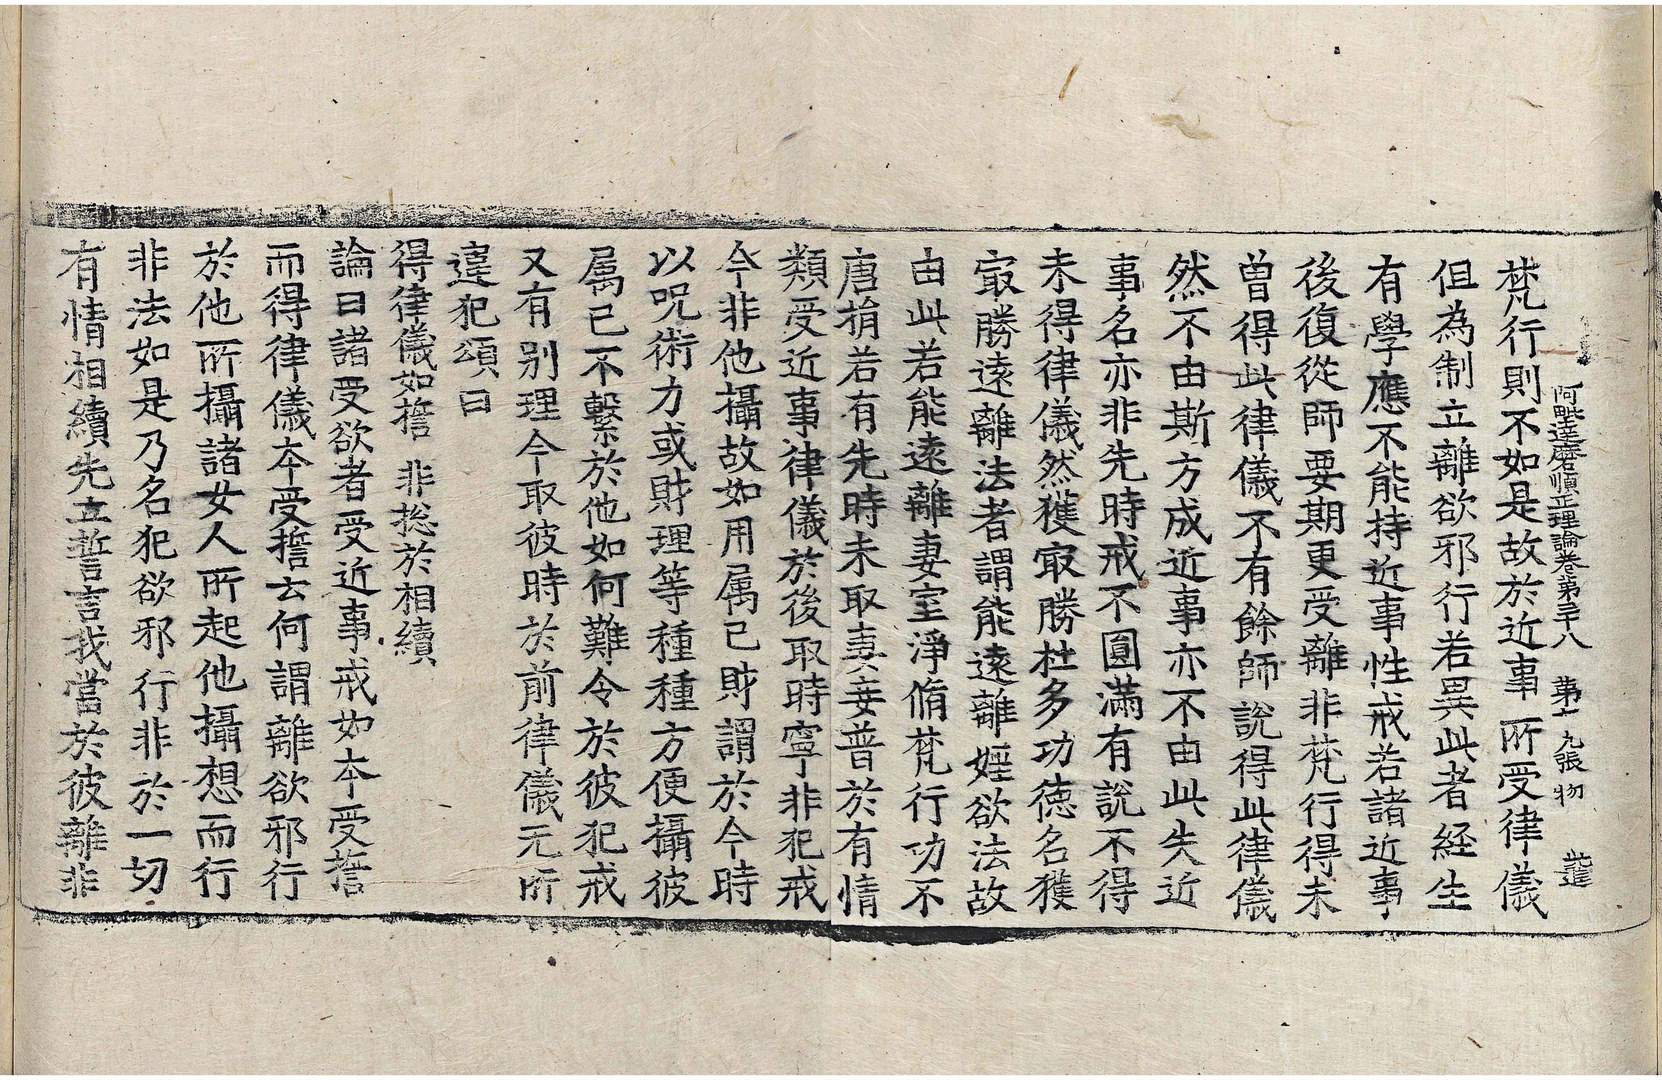 阿毗達磨順正理論卷第三十八 第十九張 物
梵行則不如是故於近事所受律儀
但為制立離欲邪行若異此者経生
有學應不能持近事性戒若諸近事
後復從師要期更受離非梵行得未
曾得此律儀不有餘師說得此律儀
然不由斯方成近事亦不由此失近
事名亦非先時戒不圓滿有說不得
未得律儀然獲㝡勝杜多功德名獲
㝡勝遠離法者謂能遠離婬欲法故
由此若能遠離妻室淨脩梵行功不
唐捐若有先時未取妻妾普於有情
類受近事律儀於後取時寧非犯戒
今非他攝故如用属已財謂於今時
以呪術力或財理等種種方便攝彼
属已不繫於他如何難令於彼犯戒
又有别理今取彼時於前律儀无所
違犯頌曰
得律儀如誓 非総於相續
論曰諸受欲者受近事戒如本受誓
而得律儀本受誓云何謂離欲邪行
於他所攝諸女人所起他攝想而行
非法如是乃名犯欲邪行非於一切
有情相續先立誓言我當於彼離非